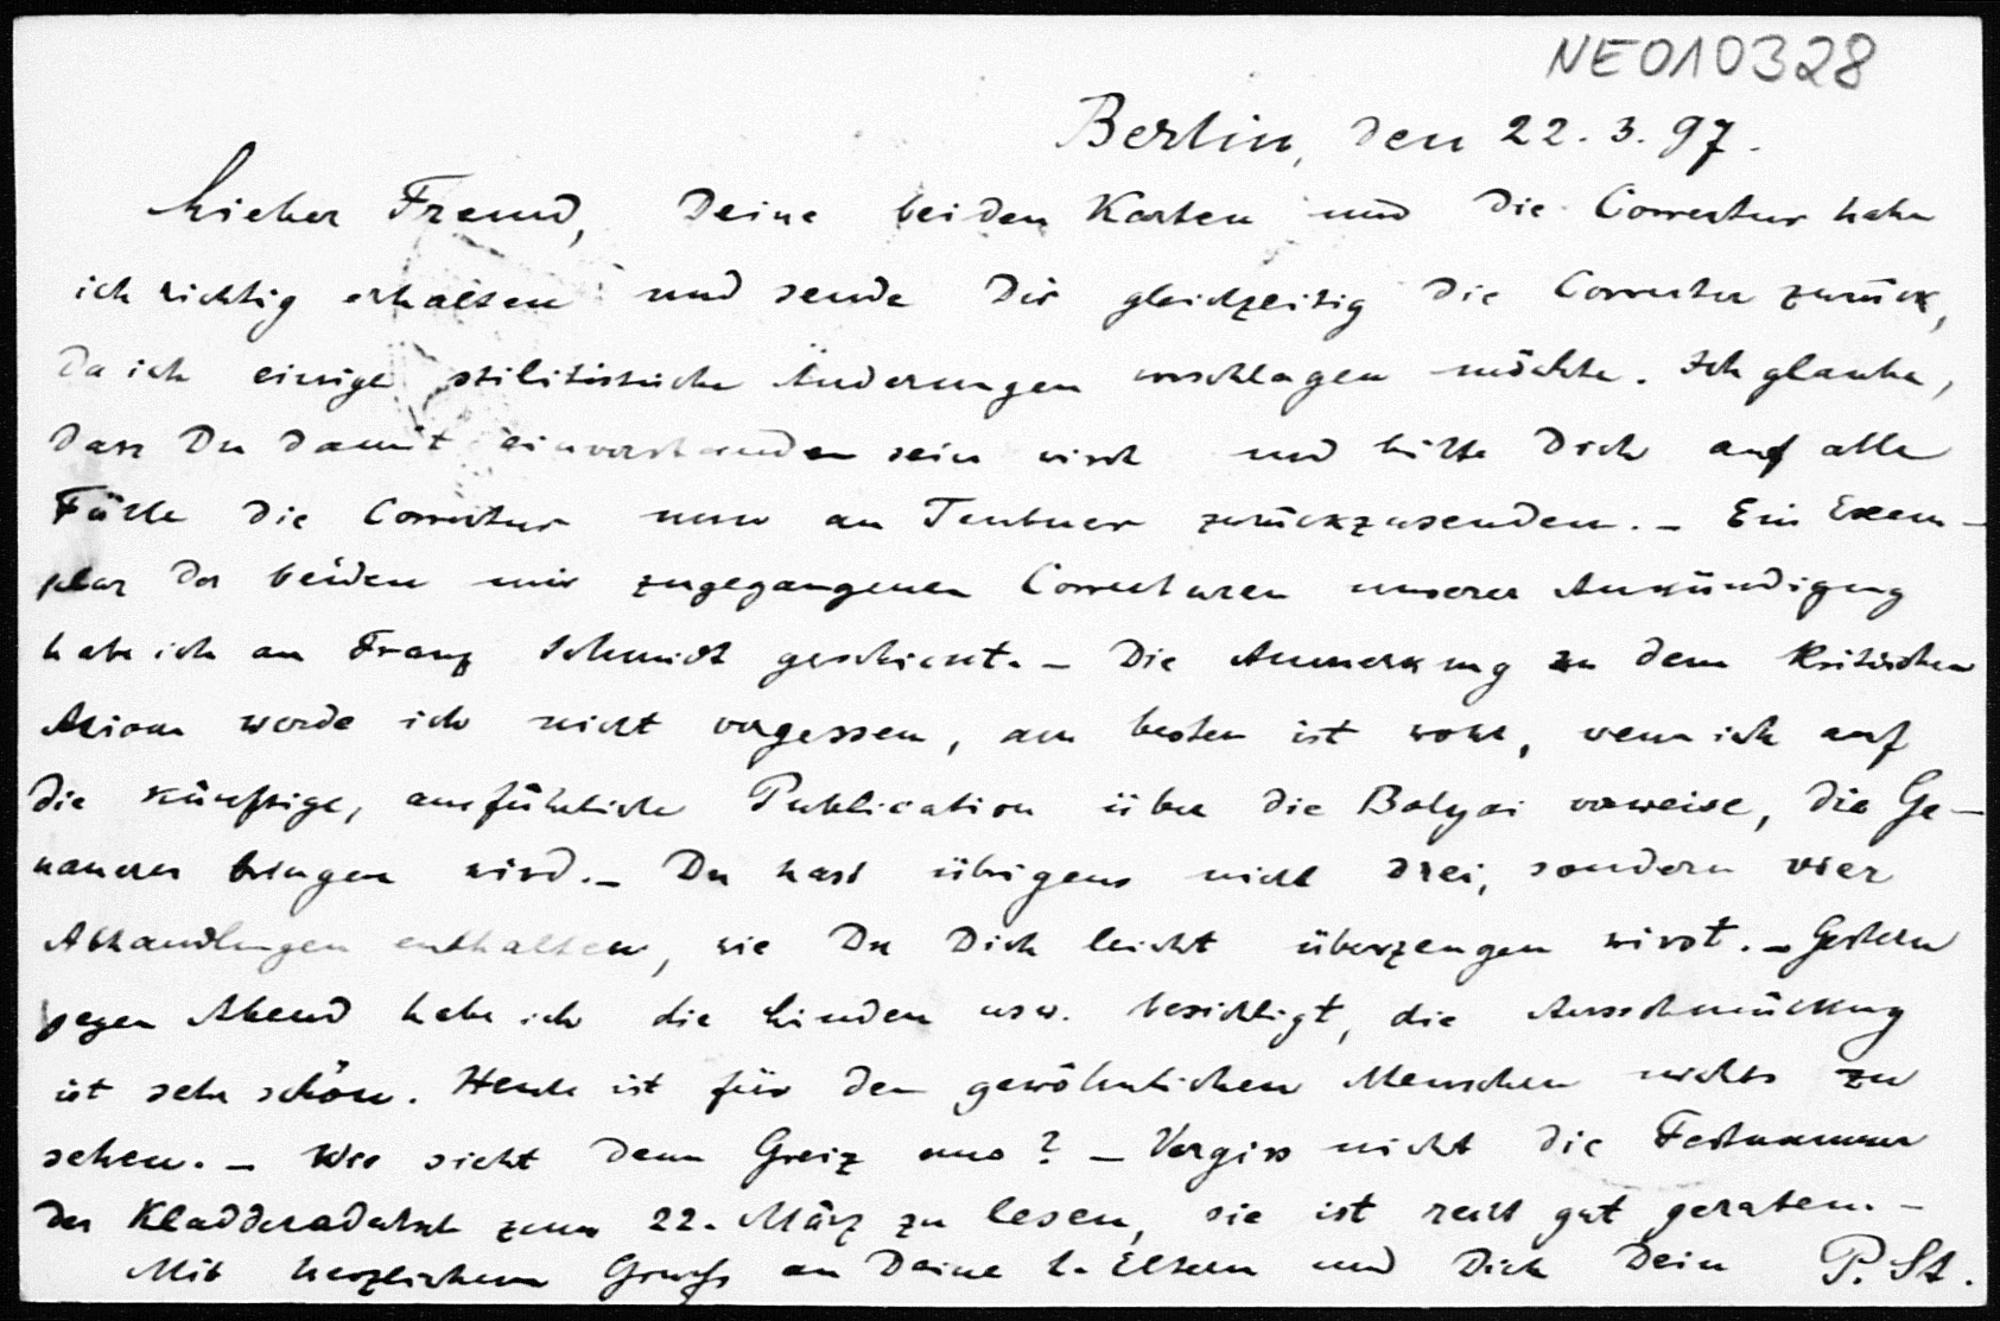 NE010328
Berlin, den 22.3.97.
Lieber Freund, Deine beiden Karten und die Correctur habe
ich richtig erhalten und sende Dir gleichzeitig die Correctur zurück,
da ich einige stilistische Änderungen vorschlagen möchte. Ich glaube,
dass Du damit einverstanden sein wirst und bitte Dich auf alle
Fälle die Correctur nun an Teubner zurückzusenden. – Ein Exem-
plar der beiden mir zugegangenen Correcturen unserer Ankündigung
habe ich an Franz Schmidt geschickt. – Die Anmerkung zu dem kritischen
Axiom werde ich nicht vergessen, am besten ist wohl, wenn ich auf
die künftige, ausführliche Publication über die Bolyai verweise, die Ge-
naueres bringen wird. – Du hast übrigens nicht drei, sondern vier
Abhandlungen enthalten, wie Du Dich leicht überzeugen wirst. – Gestern
gegen Abend habe ich die Linden usw. besichtigt, die Ausschmückung
ist sehr schön. Heute ist für den gewöhnlichen Menschen nichts zu
sehen. – Wie sieht denn Greiz aus? – Vergiss nicht die Festnummer
des Kladderadatsch zum 22. März zu lesen, sie ist recht gut geraten. –
Mit herzlichem Gruss an Deine l. Eltern und Dich Dein P. St.